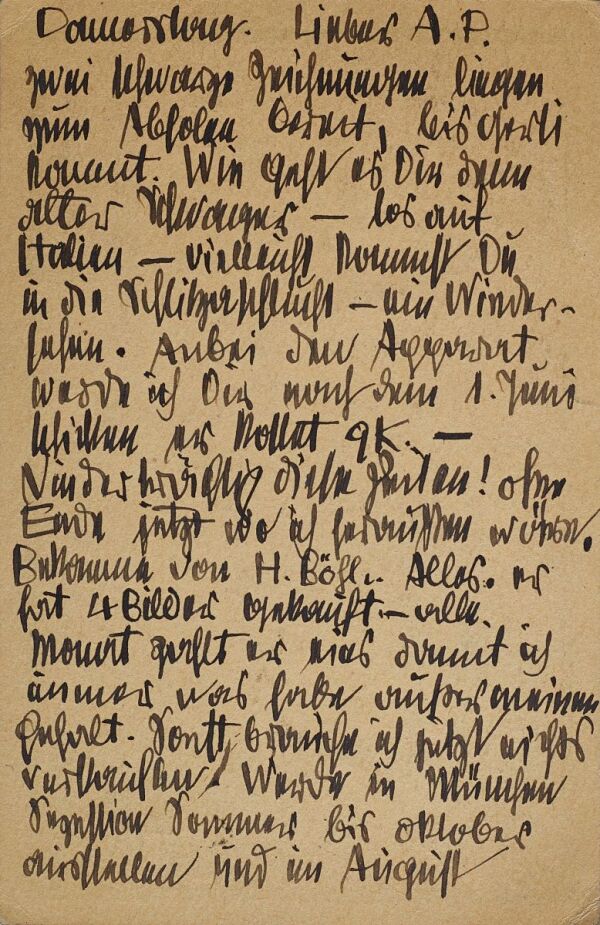 Donnerstag. Lieber A. P.
zwei schwarze Zeichnungen liegen
zum Abholen bereit, bis Gerti
kommt. Wie geht es Dir denn
alter Schwager – los auf
Italien – vielleicht kommst Du
in die Schlitzaschlucht – ein Wieder-
sehen. Anbei den Apparat
werde ich Dir nach dem 1. Juni
schicken er kostet 9 K. –
Niederträchtig diese Zeiten! ohne
Ende jetzt wo ich heraußen wäre.
Bekomme von H. Böhl.. Alles. er
hat 4 Bilder gekauft – alle
Monat zahlt er eins damit ich
immer was habe außer meinen
Gehalt. Sonst brauche ich jetzt nichts
verkaufen! Werde in München
Sezession Sommer bis Oktober
ausstellen und im August